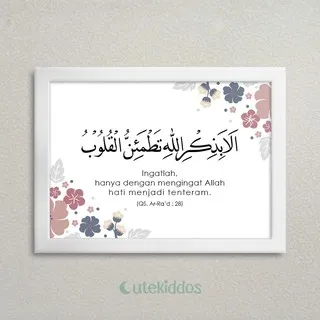 اَلَا بِذِكْرِ اللّٰهِ تَطْمَئِنُّ الْقُلُوْبُ
Ingatlah,
hanya dengan mengingat Allah
hati menjadi tenteram.
(QS, Ar-Ra'd : 28)
cutekiddos